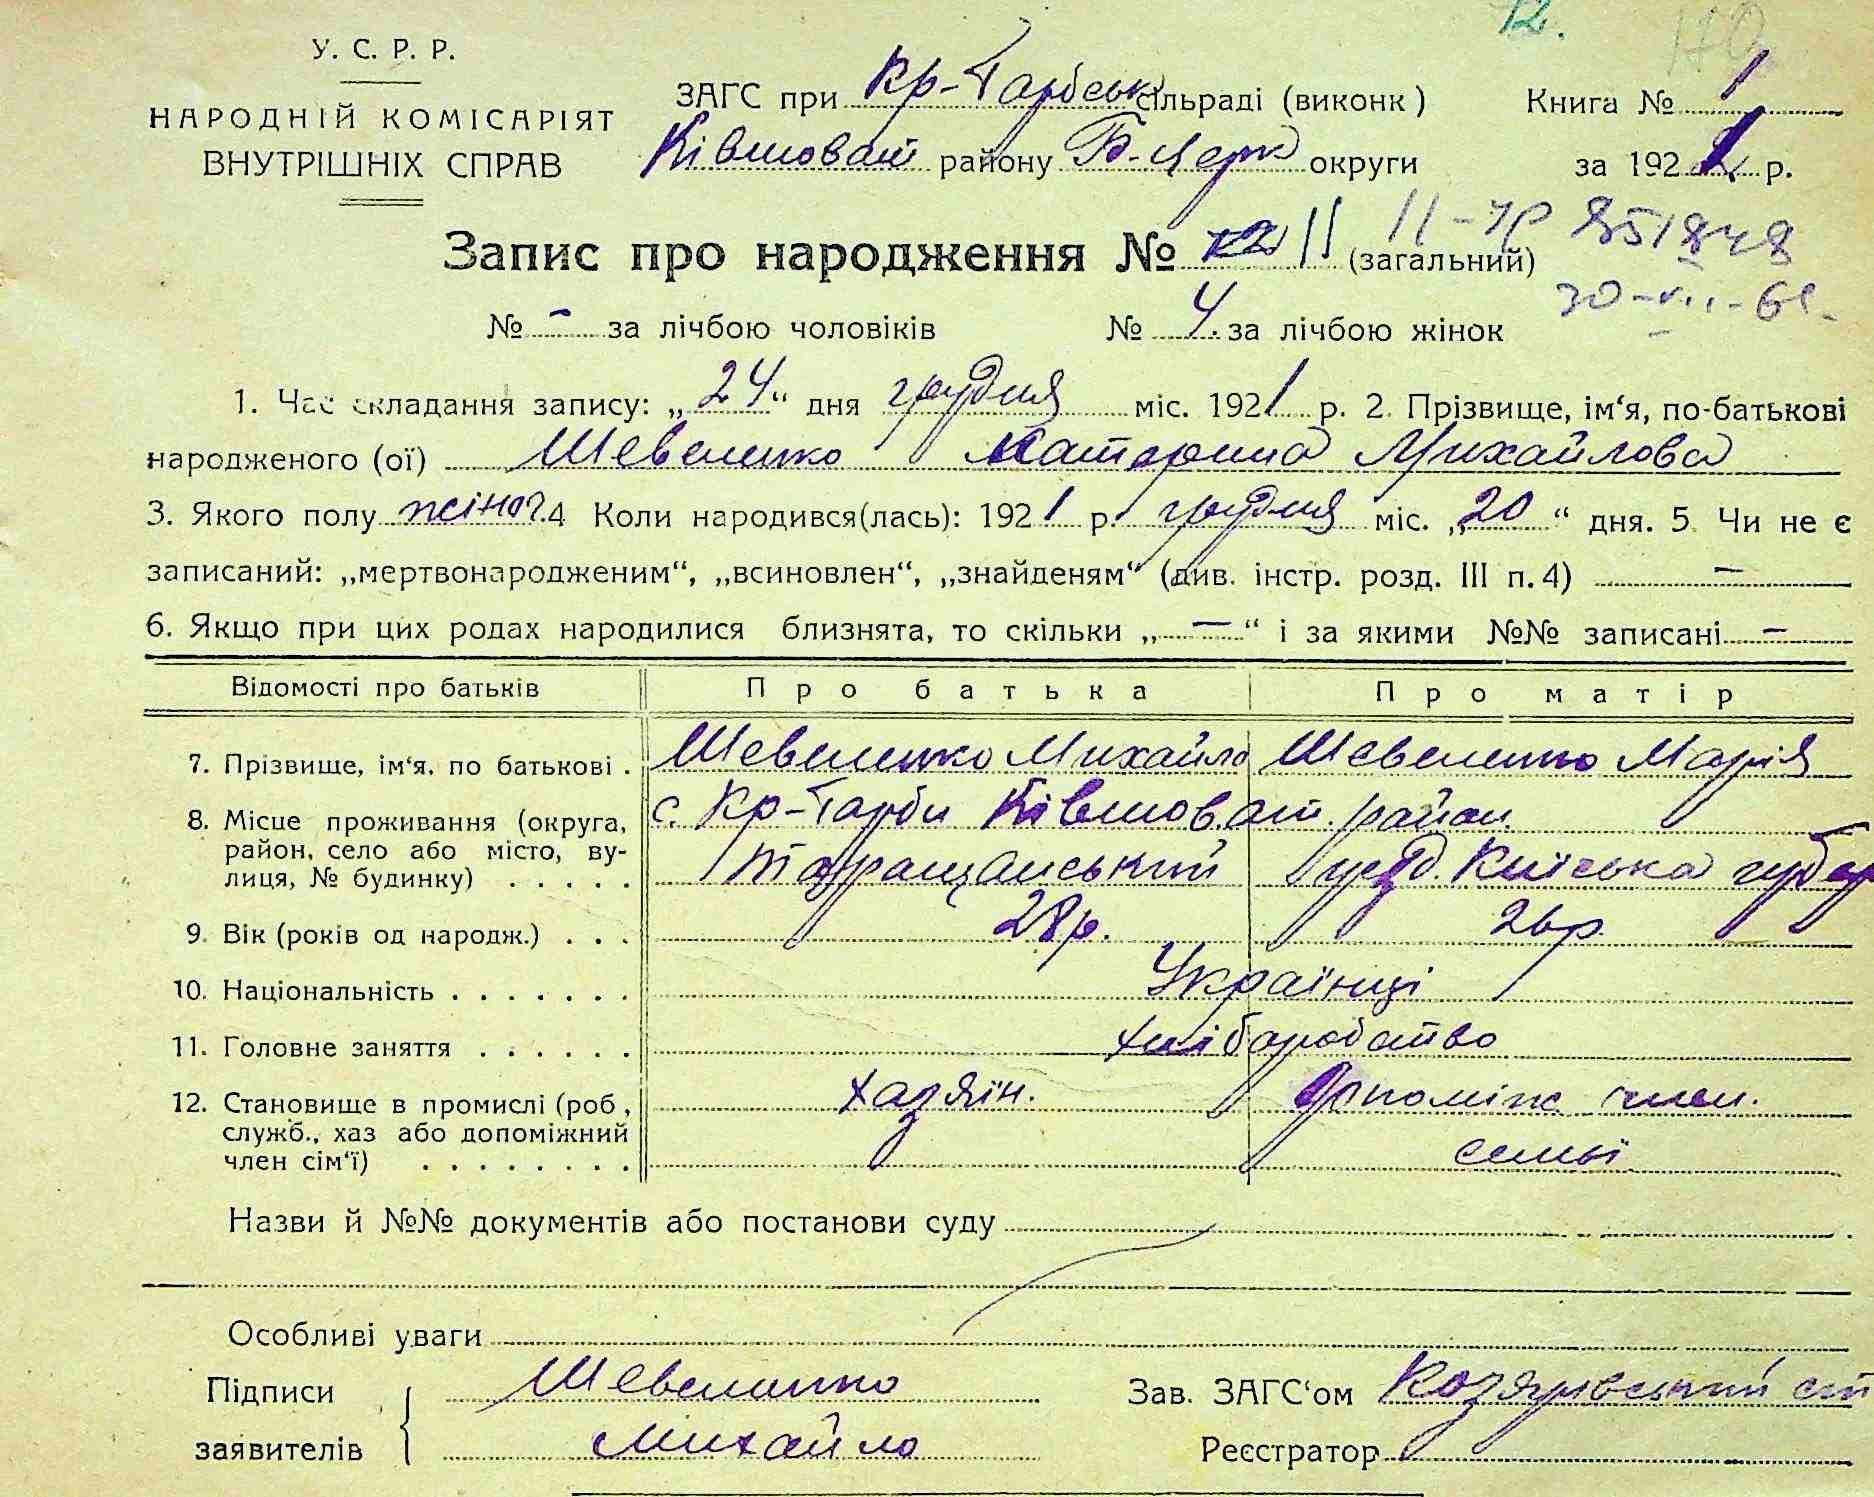 12.
170
У. С. Р. Р.
НАРОДНІЙ КОМІСАРІЯТ
ВНУТРІШНІХ СПРАВ
ЗАГС при Кр-Гарбськ сільраді (виконк)
Ківшоват району Б-церк округи
Книга № 1
за 1921 р.
Запис про народження № 11 (загальний)
30-VII-61.
№ - за лічбою чоловіків № 4. за лічбою жінок
1. Час складання запису: „24“ дня грудня міс. 1921 р. 2. Прізвище, ім‘я, по-батькові
народженого (ої) Шевеленко Катерина Михайлова
3. Якого полу жіноч. 4 Коли народився(лась): 1921 р. грудня міс. „20“ дня. 5. Чи не є
записаний: „мертвонародженим“, „всиновлен“, „знайденям“ (див. інстр. розд. III п. 4) —
6. Якщо при цих родах народилися близнята, то скільки „—“ і за якими №№ записані —
Відомості про батьків Про батька Про матір
7. Прізвище, ім‘я, по батькові . Шевеленко Михайло Шевеленко Марія
8. Місце проживання (округа, с. Кр-Гарби Ківшоват. район.
район, село або місто, ву-
лиця, № будинку) . . . . . Таращанський уезд. Київська губер
9. Вік (років од народж.) . . . 28 р. 26 р.
10. Національність . . . . . . . Українці
11. Головне заняття . . . . . . Хліборобство
12. Становище в промислі (роб, хазяїн. Допоміж член.
служб., хаз або допоміжний
член сім‘ї) . . . . . . . . семьї
Назви й №№ документів або постанови суду
Особливі уваги
Підписи Шевеленко
заявителів Михайло
Зав. ЗАГС‘ом
Реєстратор